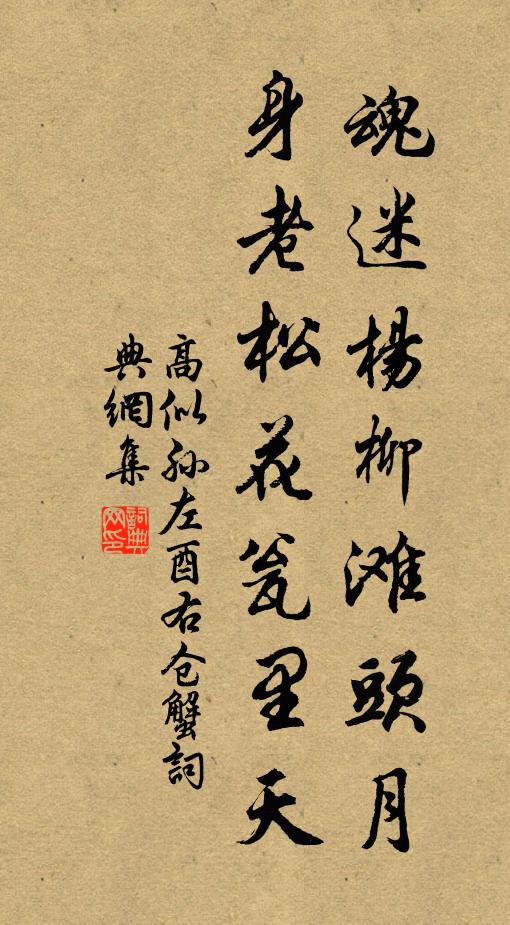 魂迷楊柳滩頭月
身老松花瓮里天
高似孙左酉右仓蟹詞
典網集
詞典网印